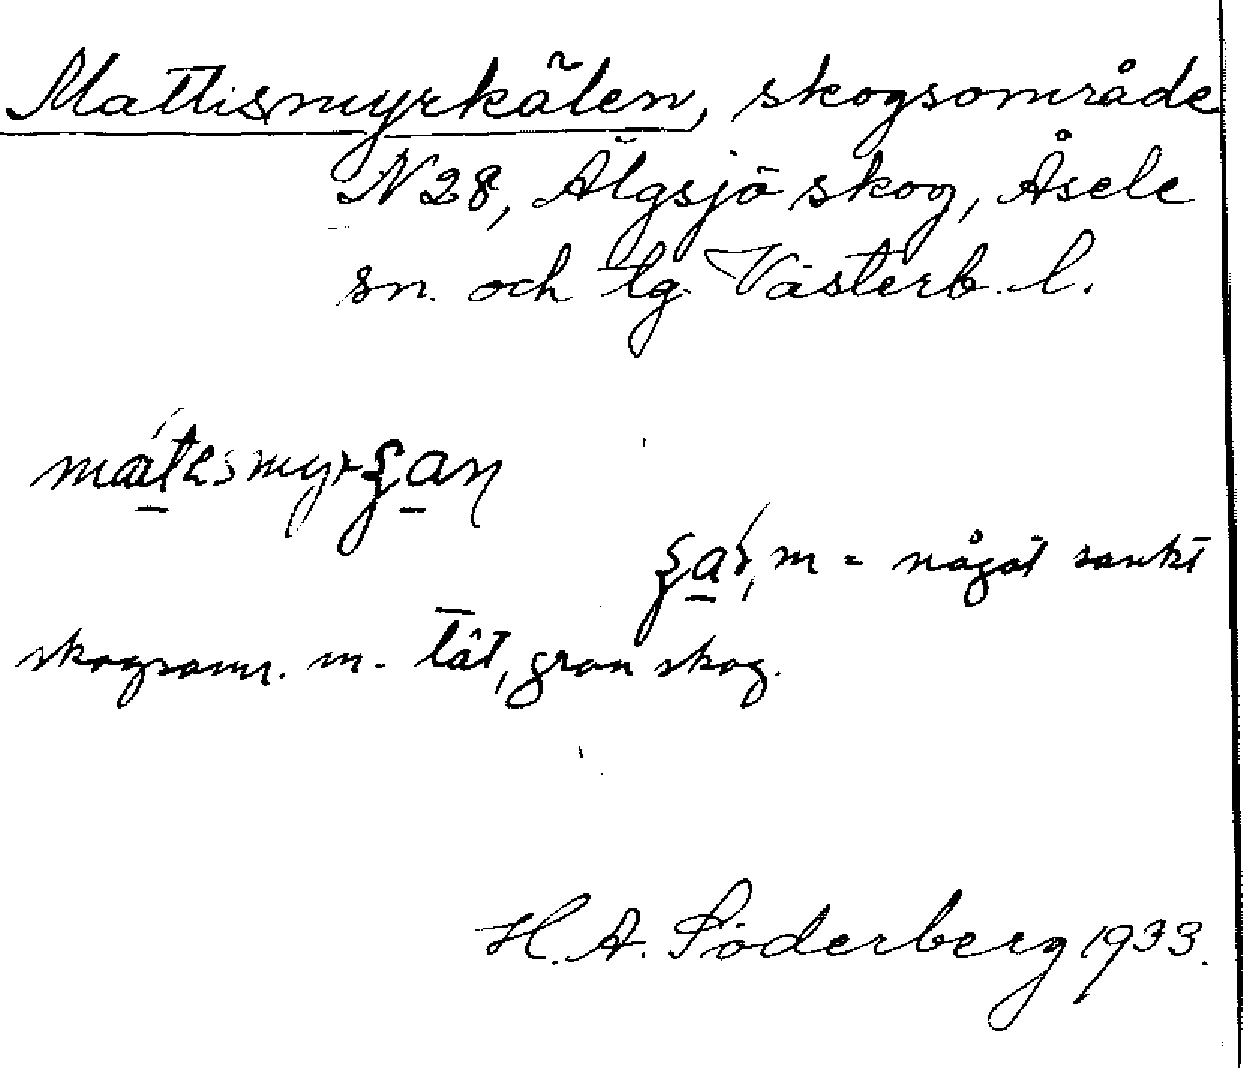 Mattismyrkälen, skogsområde
N 28, Älgsjö skog, Åsele
sn. och lg. Västerb. l.
m = något sankt
skogsomr. m. tät, gran skog.
H. A. Söderberg 1933.